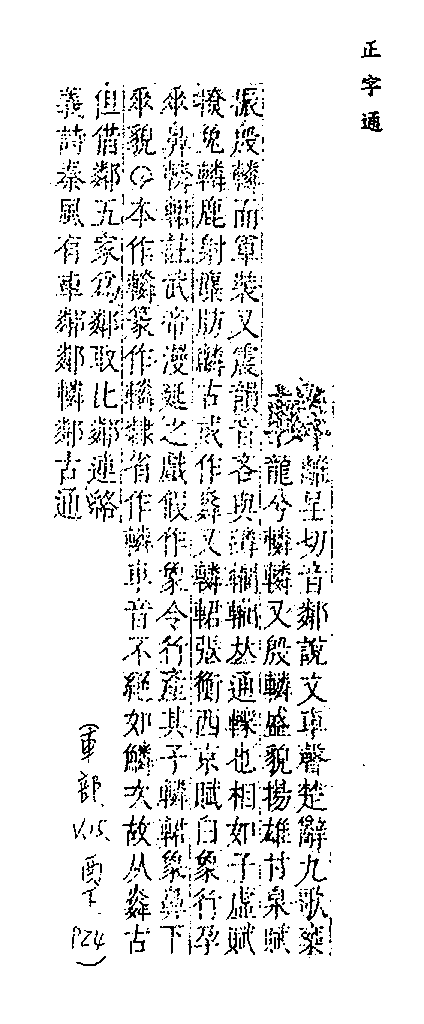 正字通
離呈切音鄰說文車聲楚辭九歌椉
龍兮轔轔又殷轔盛貌揚雄甘泉賦
振殷轔而軍裝又震韻音吝與𠀤通轢也相如子虛賦
掩兔轔鹿射麋麟古或作粦又轔輑張衡西京賦白象行孕
垂鼻轔輑註武帝漫延之戲假作象令行產其子轔輑象鼻下
垂貌○本作轔篆作隸省作轔車音不絕如鱗次故从粦古
但借鄰五家爲鄰取比鄰連絡
義詩秦風有車鄰鄰轔鄰古通
(車部 V.15 酉下 P24)